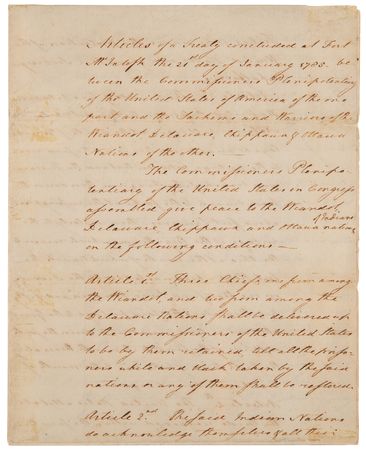 Articles of a Treaty concluded at Fort
McIntosh the 21st day of January 1785. be-
tween the Commissioners Plenipotentiary
of the United States of America of the one
part and the Sachems and Warriors of the
Wiandot Delaware, Chippawa & Ottawa
Nations of the other.
The Commissioners Plenipo-
tentiary of the United States in Congress
assembled give peace to the Wiandot,
of Indians
Delaware, Chippawa and Ottawa nations
on the following conditions —
Article 1st. Three Chiefs, one from among
the Wiandot, and two from among the
Delaware Nations shall be delivered up
to the Commissioners of the United States
to be by them retained, till all the priso-
ners white and black taken by the said
nations or any of them shall be restored.
Article 2nd. The said Indian Nations
do acknowledge themselves & all their